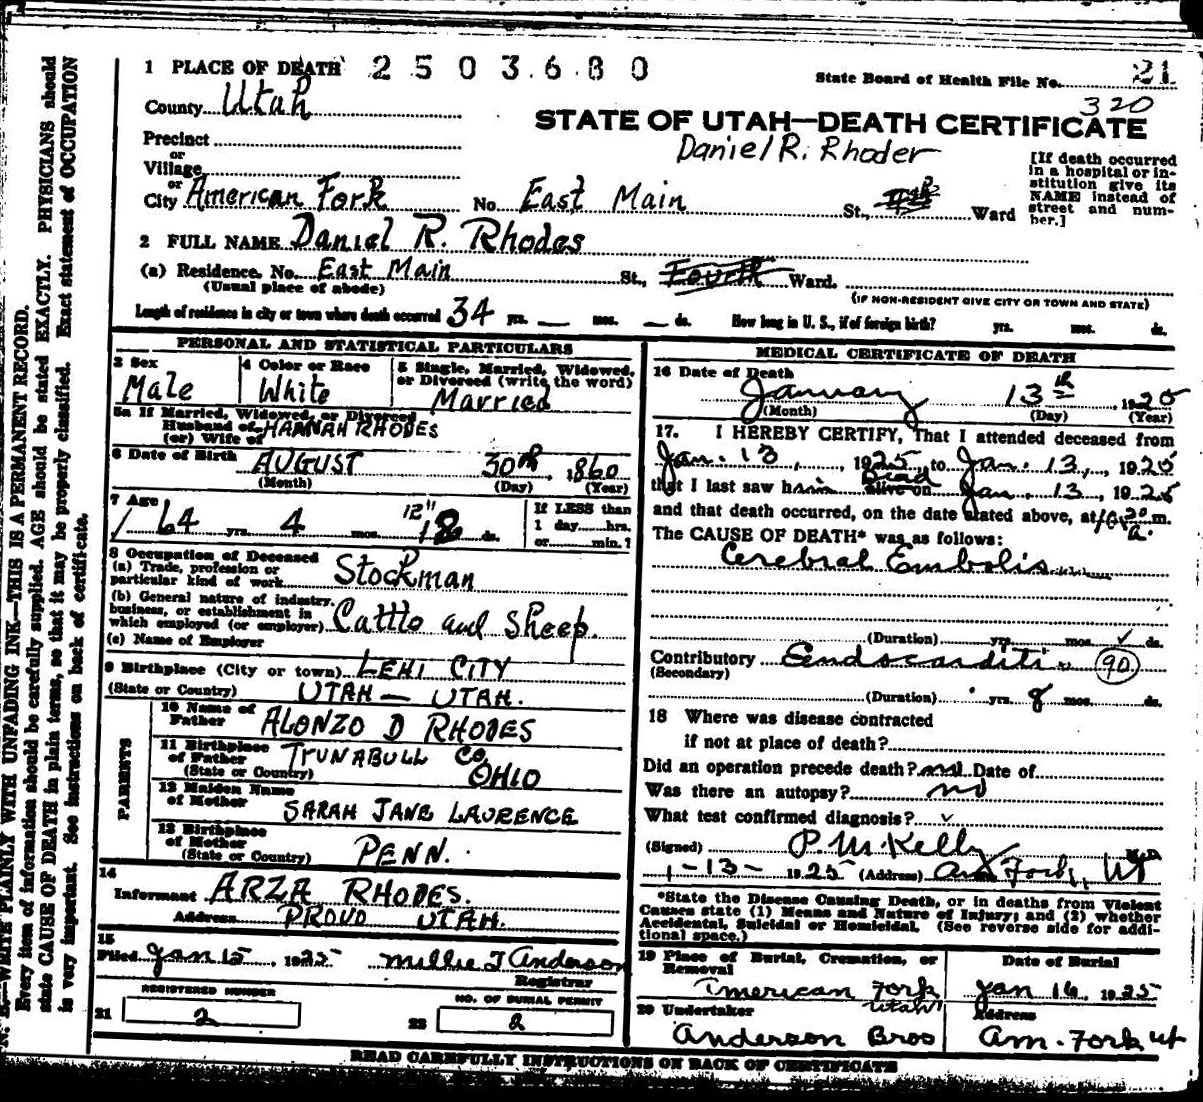 1 PLACE OF DEATH 2 5 0 3 6 8 0
State Board of Health File No. 21
320
County Utah
STATE OF UTAH—DEATH CERTIFICATE
Precinct
or
Village
Daniel R. Rhoder
[If death occurred in a hospital or institution give its NAME instead of street and number.]
or
City American Fork No. East Main St., Ward
2 FULL NAME Daniel R. Rhodes
(a) Residence. No. East Main St., Fourth Ward.
(Usual place of abode) (IF NON-RESIDENT GIVE CITY OR TOWN AND STATE)
Length of residence in city or town where death occurred 34 yrs. — mos. — ds. How long in U. S., if of foreign birth? yrs. mos. ds.
PERSONAL AND STATISTICAL PARTICULARS
3 Sex Male
4 Color or Race White
5 Single, Married, Widowed, or Divorced (write the word) Married
5a If Married, Widowed, or Divorced
Husband of HANNAH RHODES
(or) Wife of
6 Date of Birth AUGUST 30th, 1860
(Month) (Day) (Year)
7 Age 64 yrs. 4 mos. 12" ds.
If LESS than 1 day hrs. or min.?
8 Occupation of Deceased
(a) Trade, profession or particular kind of work Stockman
(b) General nature of industry, business, or establishment in which employed (or employer) Cattle and Sheep.
(c) Name of Employer
9 Birthplace (City or town) LEHI CITY
(State or Country) UTAH — UTAH.
PARENTS
10 Name of Father ALONZO D RHODES
11 Birthplace of Father (State or Country) TRUNABULL CO, OHIO
12 Maiden Name of Mother SARAH JANE LAURENCE
13 Birthplace of Mother (State or Country) PENN.
14
Informant ARZA RHODES.
Address PROVO UTAH.
15
Filed Jan 15, 1925 Millie J Anderson
Registrar
REGISTERED NUMBER
21 2
NO. OF BURIAL PERMIT
22 2
MEDICAL CERTIFICATE OF DEATH
16 Date of Death January 13th, 1925
(Month) (Day) (Year)
17. I HEREBY CERTIFY, That I attended deceased from
Jan. 13, 1925, to Jan. 13, 1925
that I last saw him Dead alive on Jan. 13, 1925
and that death occurred, on the date stated above, at a. m.
The CAUSE OF DEATH* was as follows:
Cerebral Embolis
(Duration) yrs. mos. ds.
Contributory Endocarditis 90
(Secondary)
(Duration) yrs. 8 mos. ds.
18 Where was disease contracted
if not at place of death?
Did an operation precede death? Date of
Was there an autopsy? no
What test confirmed diagnosis?
(Signed) P. M. Kelly M.D.
1-13- 1925 (Address) Am Fork, Ut
*State the Disease Causing Death, or in deaths from Violent Causes state (1) Means and Nature of Injury; and (2) whether Accidental, Suicidal or Homicidal. (See reverse side for additional space.)
19 Place of Burial, Cremation, or Removal American Fork Utah
Date of Burial Jan 16, 1925
20 Undertaker Anderson Bros
Address Am. Fork Ut
READ CAREFULLY INSTRUCTIONS ON BACK OF CERTIFICATE
N. B.—WRITE PLAINLY WITH UNFADING INK—THIS IS A PERMANENT RECORD.
Every item of information should be carefully supplied. AGE should be stated EXACTLY. PHYSICIANS should
state CAUSE OF DEATH in plain terms, so that it may be properly classified. Exact statement of OCCUPATION
is very important. See instructions on back of certificate.